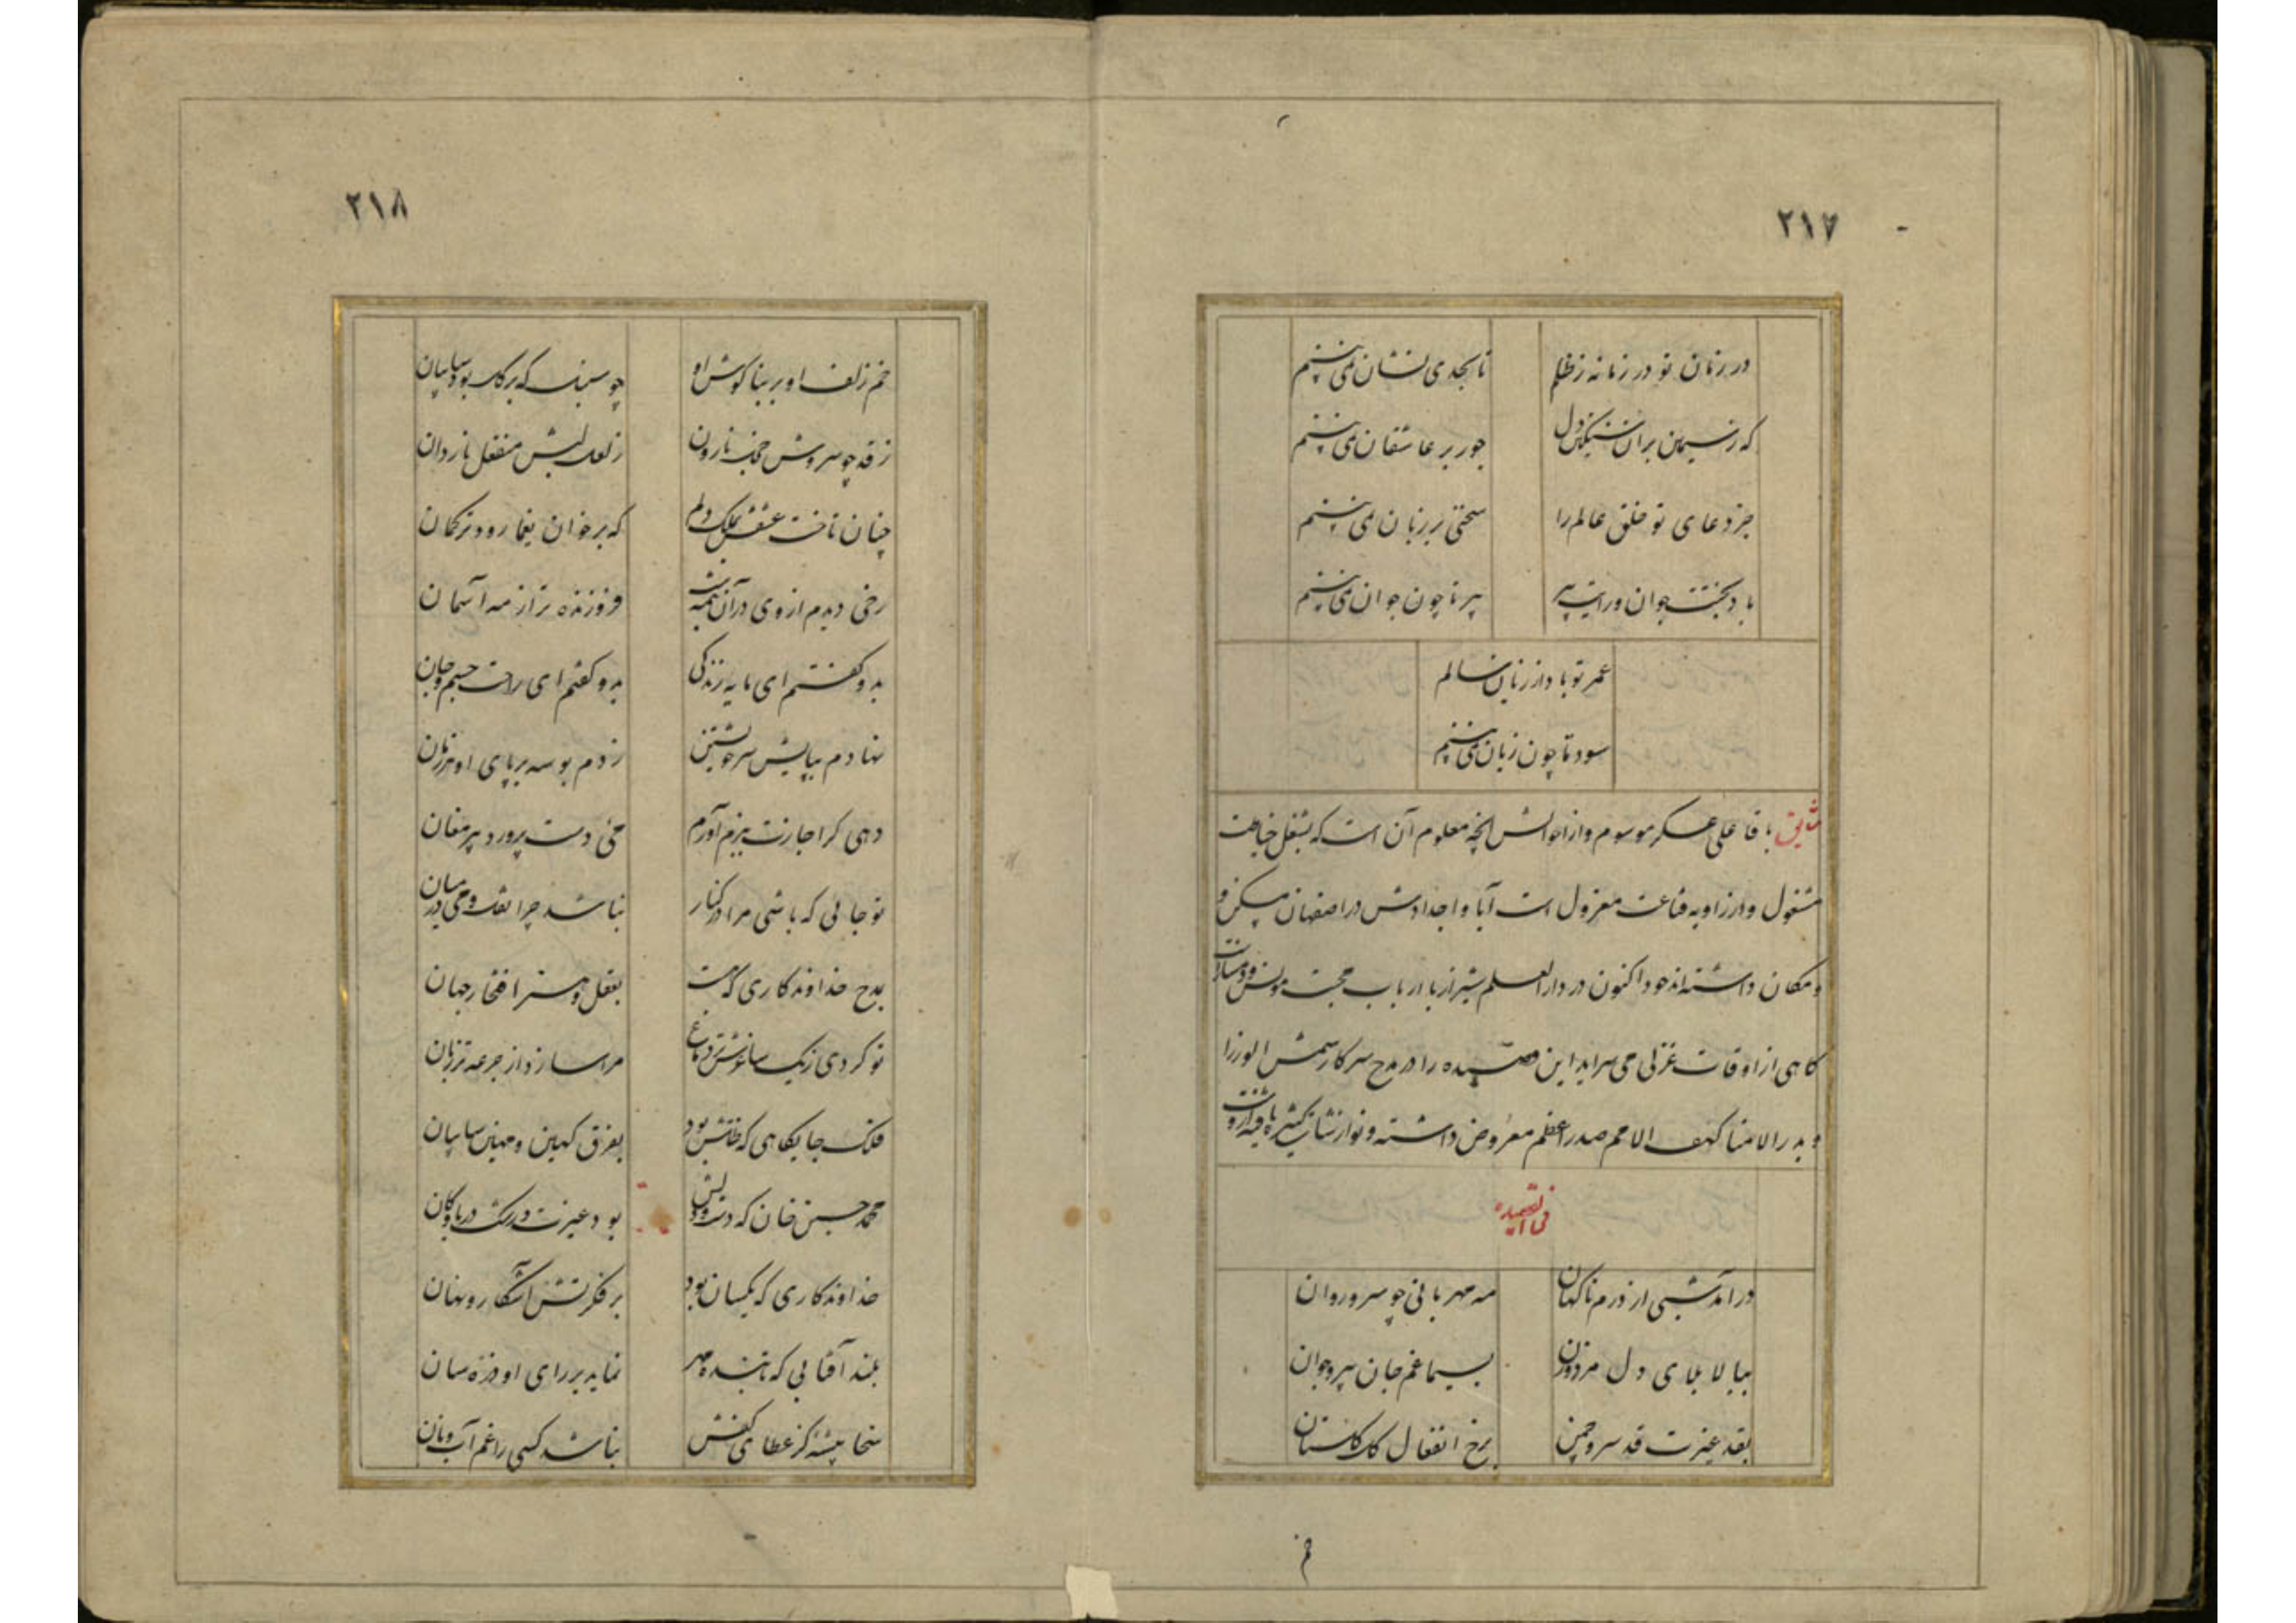 ۲۱۷
در زمان تو در زمانه ز ظلم تا بحدی نشان نمی بینم
که ز سیمین بران سنگین دل جور بر عاشقان نمی بینم
جز دعای تو خلق عالم را سخنی بر زبان نمی بینم
باد بختت جوان و رایت پیر پیر تا چون جوان نمی بینم
عمر تو باد از زیان سالم
سود تا چون زیان نمی بینم
بآقا علی عسکر موسوم و از احوالش آنچه معلوم آن است که بشغل خیاطت
مشغول و در زاویه قناعت معزول است آبا و اجدادش در اصفهان مسکن و
و مکان داشته اند خود اکنون در دار العلم شیراز با ارباب محبت مونس و
کاهی از اوقات غزلی می سراید این قصیده را در مدح سرکار شمس الوزرا
و بدر الامنا کهف الامم صدر اعظم معروض داشته و نوازشات کثیره یافته
فی القصیده
در آمد شبی از درم ناکهان مه مهربانی چو سرو روان
ببالا بلای دل مرد و زن بسیما غم جان پیر و جوان
بقد غیرت قد سرو چمن برخ انفعال کل کلستان
۲۱۸
خم زلف او بر بناکوش او چو سنبل که بر کل بود سایبان
ز قد چو سروش خجل نارون ز لعل لبش منفعل ناردان
چنان تاخت عشقش بملک دلم که بر خوان یغما رود ترکمان
رخی دیدم از وی در آن تیره شب فروزنده تر از مه آسمان
بدو کفتم ای مایه زندکی بدو کفتم ای راحت جسم و جان
نهادم بپایش سر خویشتن زدم بوسه بر پای او هر زمان
دهی کر اجازت ببزم آورم می دست پرورد پیر مغان
تو جانی که باشی مرا در کنار نباشد چرا نقل و می در میان
بمدح خداوندکاری که هست بعقل و هنر افتخار جهان
تو کردی ز یک ساغرش تر دماغ مرا ساز از جرعه تر زبان
فلک جایکاهی که ظلش بود بفرق کهین و مهین سایبان
محمد حسین خان که دست و دلش بود غیرت و رشک دریا و کان
خداوندکاری که یکسان بود بر فکرتش آشکار و نهان
بلند آفتابی که تابنده مهر نماید بر رای او ذره سان
سخا پیشه کز عطای کفش نباشد کسی را غم آب و نان